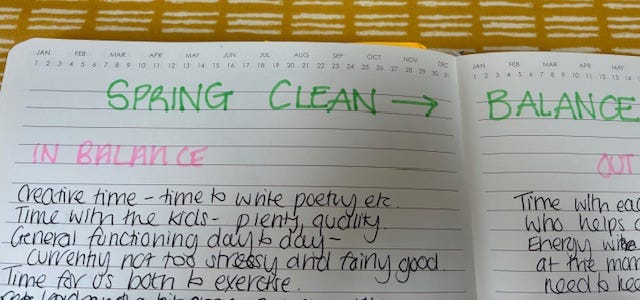 JAN FEB MAR APR MAY JUN JUL AUG SEP OCT NOV DEC
1 2 3 4 5 6 7 8 9 10 11 12 13 14 15 16 17 18 19 20 21 22 23 24 25 26 27 28 29 30 31
SPRING CLEAN →
IN BALANCE
Creative time - time to write poetry etc.
Time with the kids - plenty, quality.
General functioning day to day -
currently not too stressy and fairly good.
Time for us both to exercise.
JAN FEB MAR APR MAY
1 2 3 4 5 6 7 8 9 10 11 12 13
BALANCE
OUT
Time with eac
who helps
Energy wise
at the mom
need to